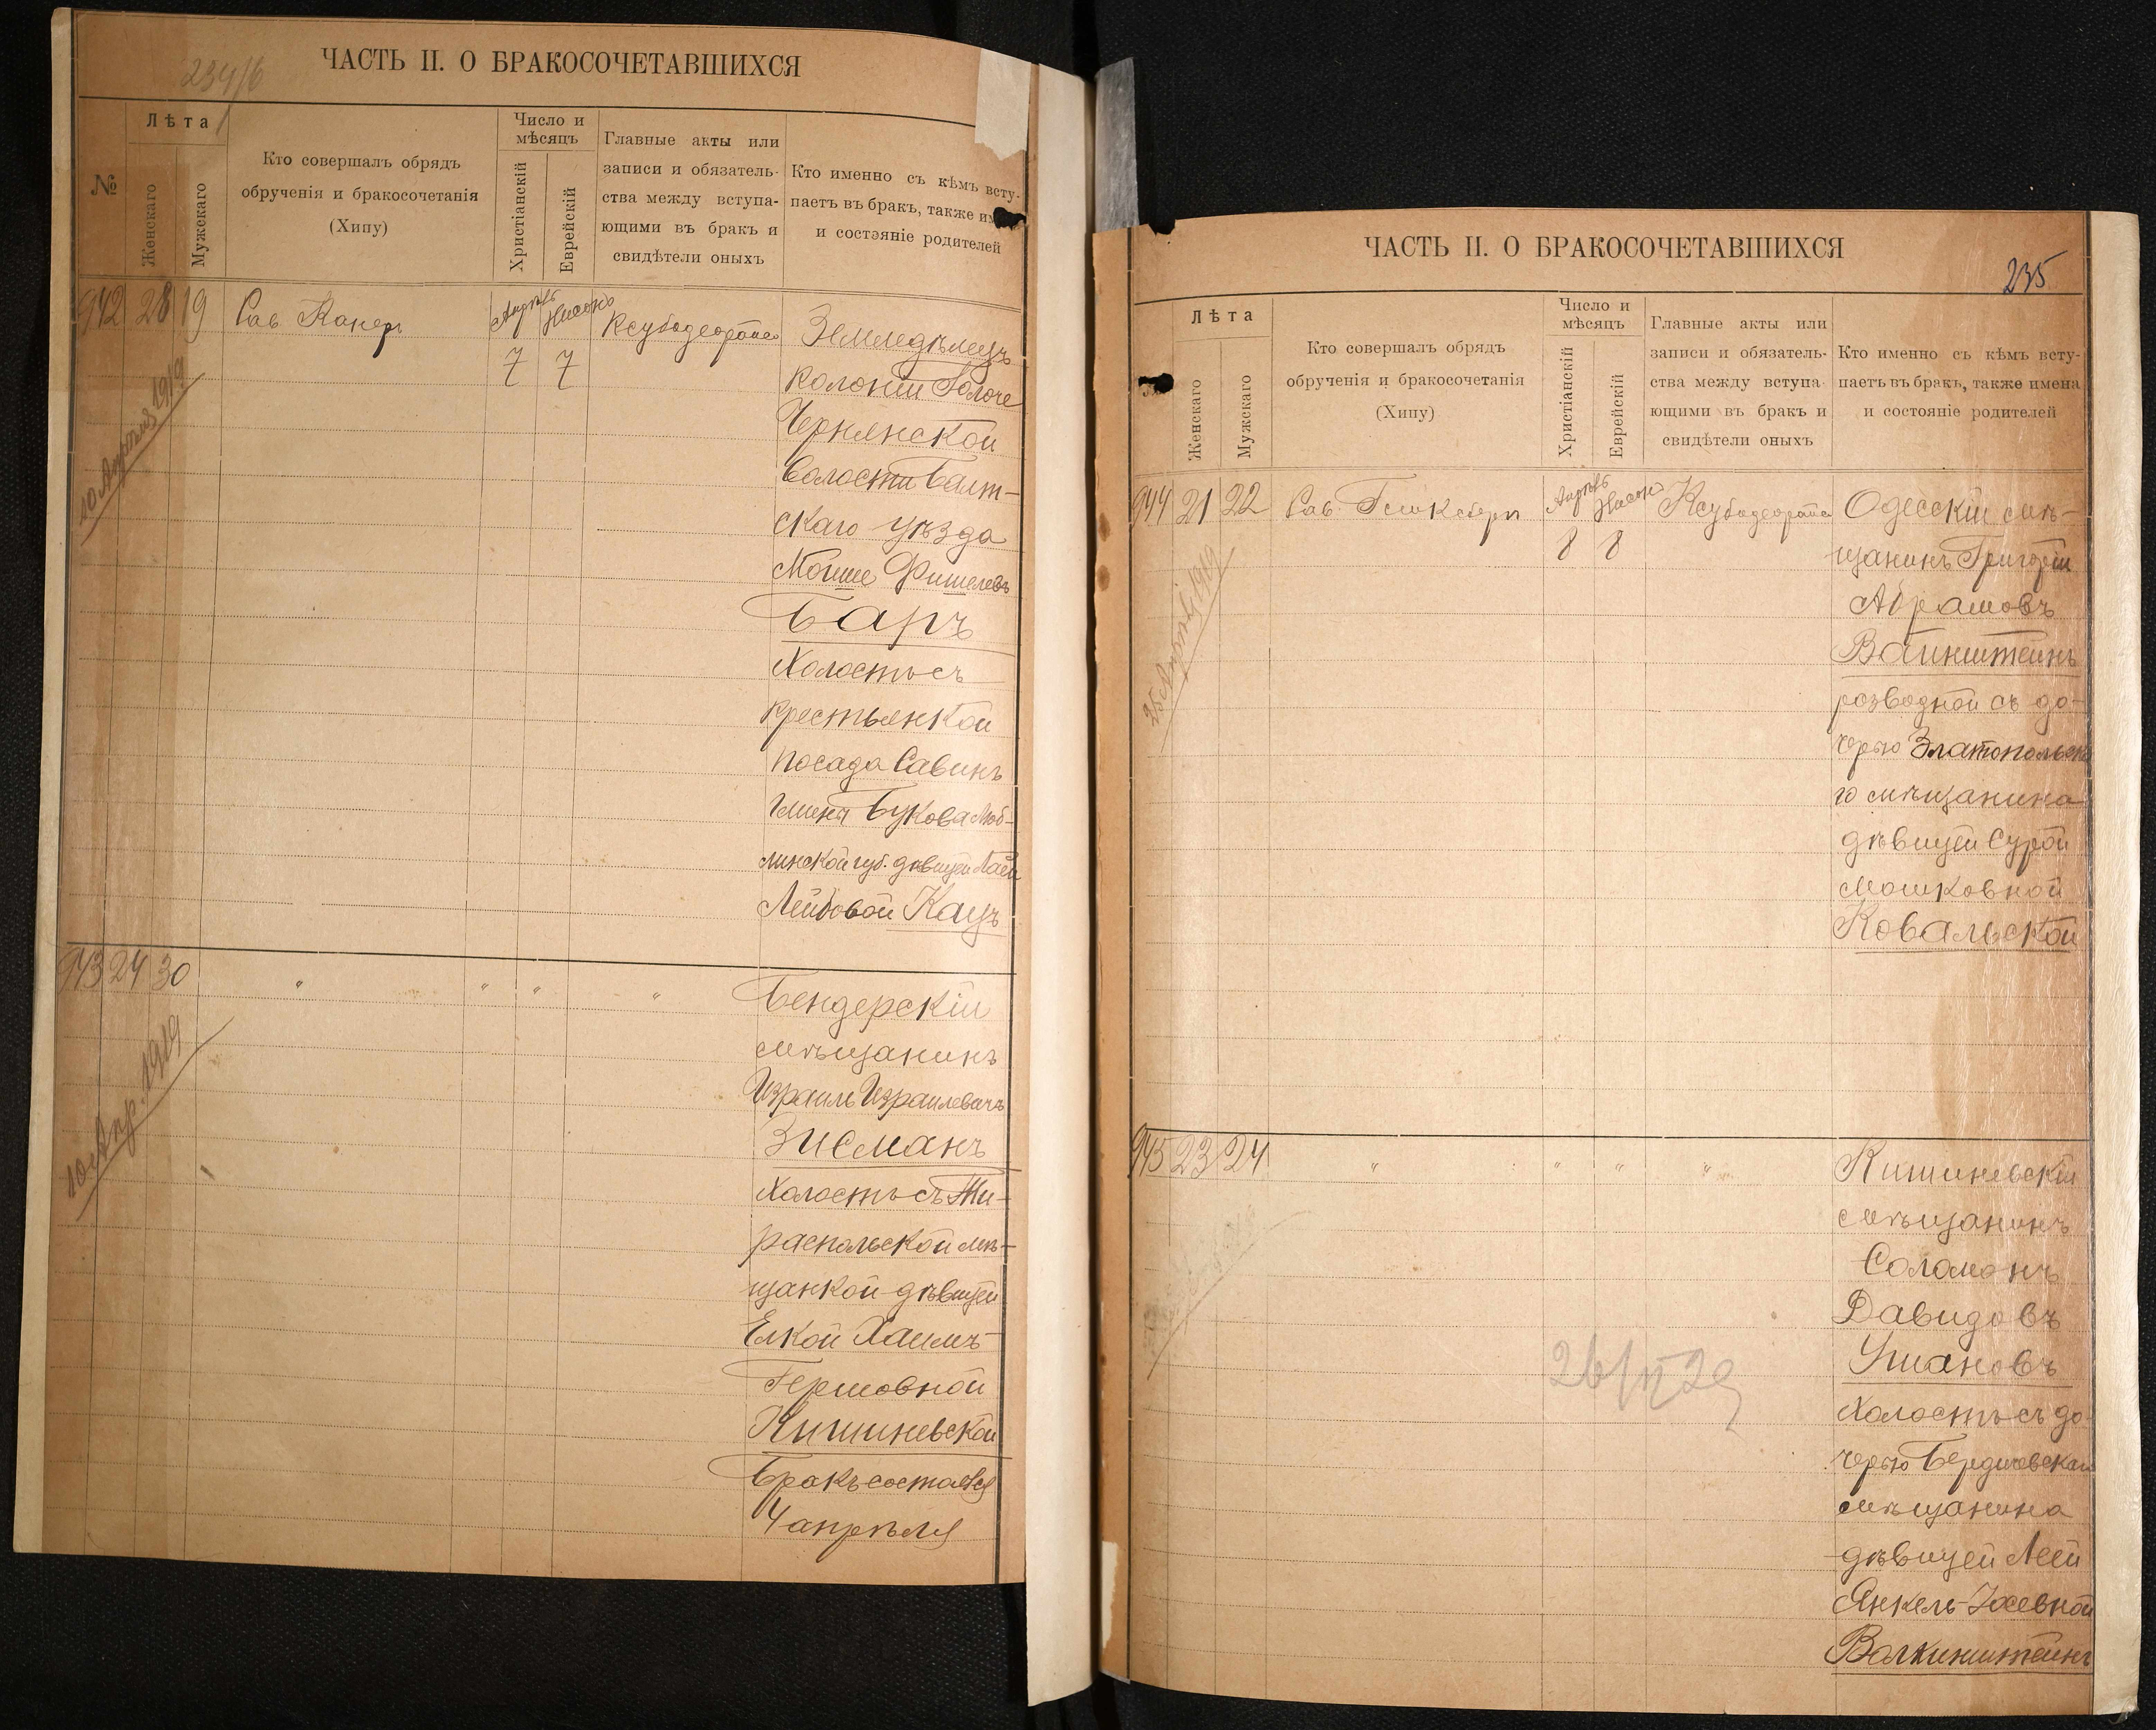 234/б
ЧАСТЬ II. О БРАКОСОЧЕТАВШИХСЯ
№
Лѣта
Женскаго
Мужскаго
Кто совершалъ обрядъ
обрученія и бракосочетанія
(Хипу)
Число и
мѣсяцъ
Христіанскій
Еврейскій
Главные акты или
записи и обязатель-
ства между вступа-
ющими въ бракъ и
свидѣтели оныхъ
Кто именно съ кѣмъ всту-
паетъ въ бракъ, также им
и состояніе родителей
942 28 19
Рав. Канеръ
Апрѣль 7
Нисонъ 7
Ксубодеорайсо
Земледѣлецъ
колоніи
Чернянской
волости Балт-
скаго уѣзда
Мойше Фишелевъ
Баръ
Холостъ съ
крестьянкой
посада Савинъ
Гмина Букова Люб-
линской губ. дѣвицей
Лейбовой Кацъ
10 Апрѣля 1919
943 24 30
" " " "
Бендерскій
мѣщанинъ
Израиль Израилевичъ
Зисманъ
Холостъ съ Ти-
распольской мѣ-
щанкой дѣвицей
Елкой Хаимъ-
Гершовной
Кишиневской
Бракъ состоялся
4 апрѣля
10 Апр. 1919
ЧАСТЬ II. О БРАКОСОЧЕТАВШИХСЯ
235
Лѣта
Женскаго
Мужскаго
Кто совершалъ обрядъ
обрученія и бракосочетанія
(Хипу)
Число и
мѣсяцъ
Христіанскій
Еврейскій
Главные акты или
записи и обязатель-
ства между вступа-
ющими въ бракъ и
свидѣтели оныхъ
Кто именно съ кѣмъ всту-
паетъ въ бракъ, также имена
и состояніе родителей
944 21 22
Рав.
Апрѣль 8
Нисонъ 8
Ксубодеорайсо
Одесскій мѣ-
щанинъ Григорій
Абрамовъ
Вайнштейнъ
разводной съ до-
черью Златопольска
го мѣщанина
дѣвицей Сурой
Мошковной
Ковальской
25 Апрѣля 1919
945 23 24
" " " "
Кишиневскій
мѣщанинъ
Соломонъ
Давидовъ
Умановъ
Холостъ съ до-
черью Бердичевскаго
мѣщанина
дѣвицей Леей
Янкель-Іосевной
Валкинштейнъ